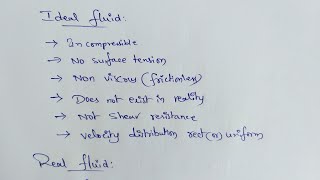 Ideal fluid:
→ In compressible
→ No surface tension
→ Non viscous (frictionless)
→ Does not exist in reality
→ Not shear resistance
→ velocity distribution rect(or) uniform
Real fluid: